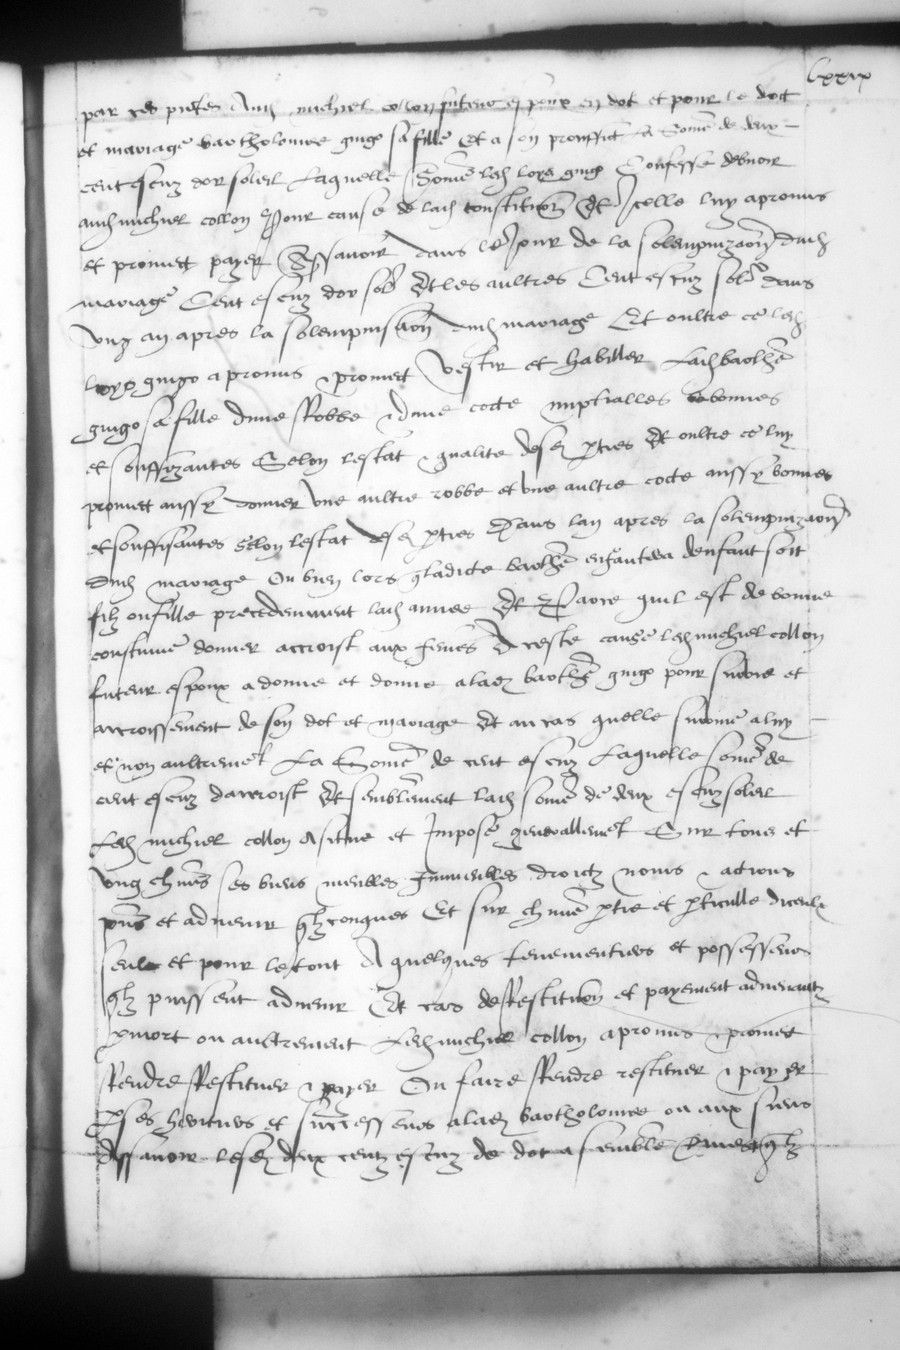 lxxix
par ces pntes Aud michiel collon futeur espoux en dot et pour le dot
et mariage bartholomee guigo sa fille Et a son prouffict la Some de deux
cent escuz dor soleil Laquelle Some led loys guigo Confesse debvoir
aud michiel collon Pour cause de lad constitution Et Icelle luy a promis
et promect payer Assavoir dans le Jour de la solempnizaon dud
mariage Cent escuz dor sol Et les aultres Cent escuz sol dans
ung an apres la solempnisaon dud mariage Et oultre ce led
loys guigo a promis & promect Vestir et habiller Lad barthe
guigo sa fille dune Robbe & dune cotte nuptialles bonnes
et souffizantes Selon lestat & qualite desd pties Et oultre ce luy
promect aussy donner une aultre robbe et une aultre cotte aussy bonnes
et souffisantes selon lestat desd pties Dans lan apres la solempnizaon
dud mariage Ou bien lors q ladicte barthe enfantera denfant soit
filz ou fille precedemment lad annee Et Parce quil est de bonne
coustume donner accroist aux femes A ceste cause led michiel collon
futeur espoux a donne et donne a lad barthe guigo pour et
accroissement de son dot et mariage Et au cas quelle survive a luy
et non aultremet La Some de cent escuz Laquelle some de
cent escuz daccroist Et semblement lad some de deux escuz soleil
Led michiel collon assitue et Impose generallemet Sur tous et
ung chmes ses biens meubles Immeubles droictz noms & actions
pns et advenir qlzconques Et sur chmue ptie et pticulle diceulx
seul et pour le tout A quelques tenementiers et possesseurs
qlz puissent advenir Et cas de Restitution et payement advenant
p mort ou aultrement Led michiel collon a promis & promect
Rendre Restituer & payer Ou faire Rendre restituer & payer
p ses heritiers et successeurs a lad bartholomee ou aux siens
Assavoir lesd deux centz escuz de dot ensemble